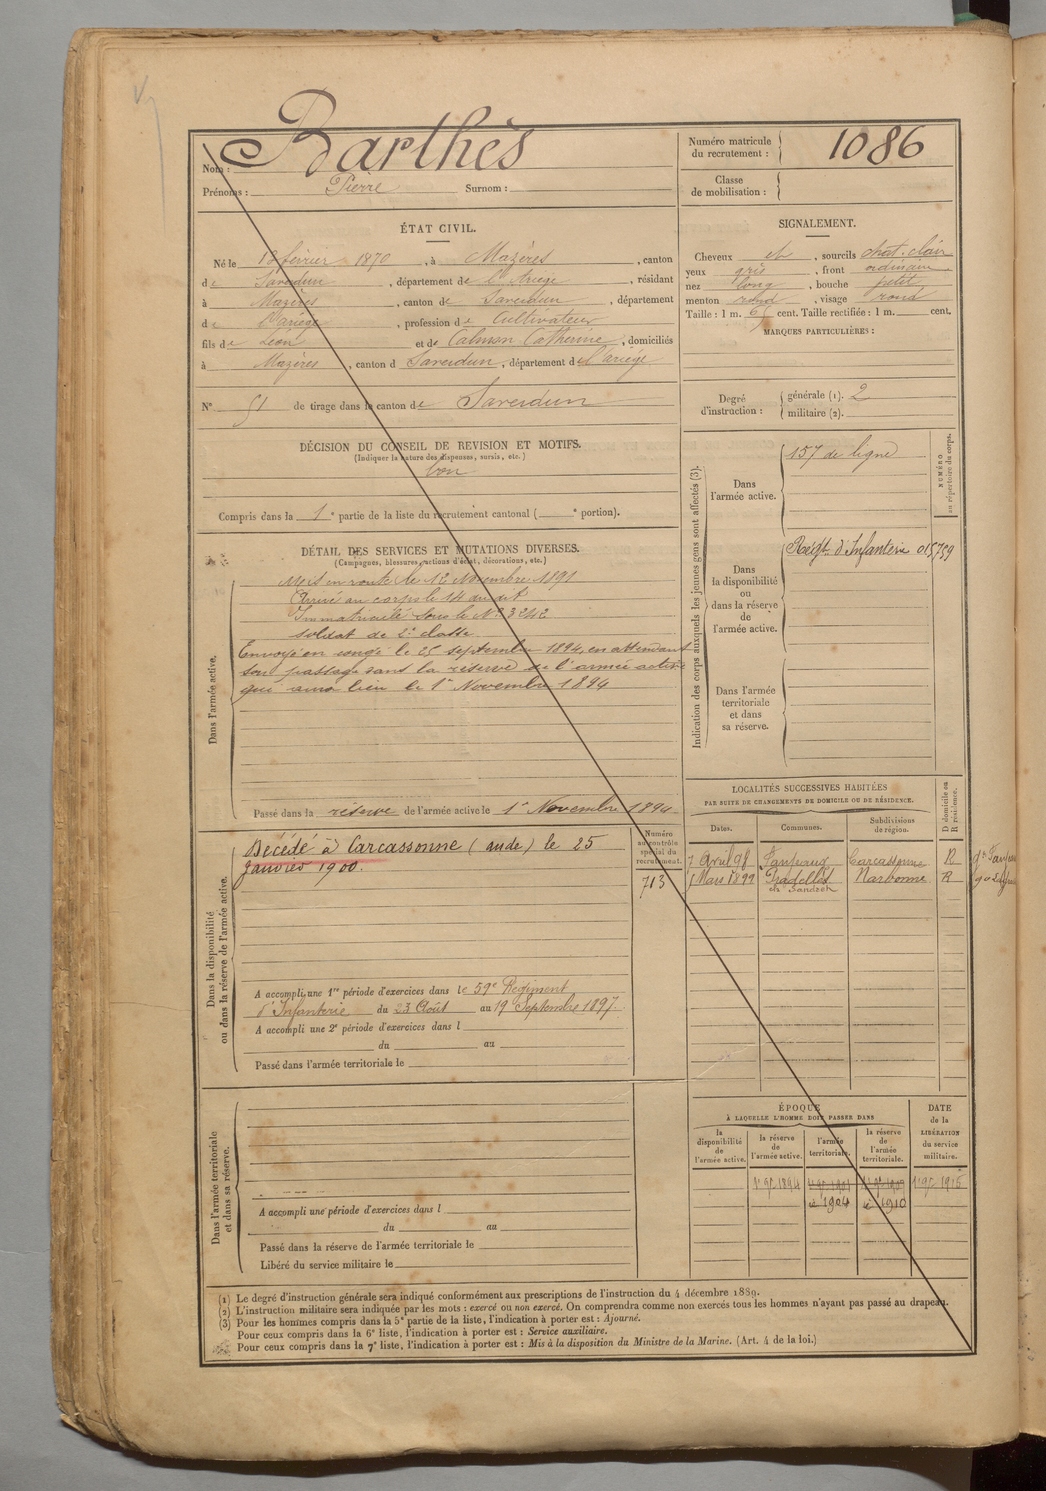 Nom : Barthès
Prénoms : Pierre Surnom :
Numéro matricule du recrutement : 1086
Classe de mobilisation :
ÉTAT CIVIL.
Né le 12 février 1870, à Mazères, canton
de Saverdun, département de l'Ariège, résidant
à Mazères, canton de Saverdun, département
de l'Ariège, profession de Cultivateur
fils de Léon et de Calmon Catherine, domiciliés
à Mazères, canton d Saverdun, département de l'ariége
N° 51 de tirage dans le canton de Saverdun
SIGNALEMENT.
Cheveux et, sourcils chat. clair
yeux gris, front ordinaire
nez long, bouche petite
menton rond, visage rond
Taille : 1 m. 65 cent. Taille rectifiée : 1 m. cent.
MARQUES PARTICULIÈRES :
Degré d'instruction : générale (1). 2
militaire (2).
DÉCISION DU CONSEIL DE REVISION ET MOTIFS.
(Indiquer la nature des dispenses, sursis, etc.)
bon
Compris dans la 1e partie de la liste du recrutement cantonal ( e portion).
DÉTAIL DES SERVICES ET MUTATIONS DIVERSES.
(Campagnes, blessures, actions d'éclat, décorations, etc.)
Dans l'armée active.
Mis en route le 12 Novembre 1891
Arrivé au corps le 14 du dit
Immatriculé sous le N° 3242
soldat de 2e classe
Envoyé en congé le 25 septembre 1894, en attendant
son passage dans la réserve de l'armée active
qui aura lieu le 1er Novembre 1894
Passé dans la réserve de l'armée active le 1er Novembre 1894
Indication des corps auxquels les jeunes gens sont affectés (3).
NUMÉRO au répertoire du corps.
Dans l'armée active.
157 de ligne
Dans la disponibilité ou dans la réserve de l'armée active.
Régt. d'Infanterie 015759
Dans l'armée territoriale et dans sa réserve.
Dans la disponibilité ou dans la réserve de l'armée active.
Décédé à Carcassonne (aude) le 25
Janvier 1900.
Numéro au contrôle spécial du recrutement.
713
A accompli une 1re période d'exercices dans le 59e Régiment
d'Infanterie du 23 Août au 19 Septembre 1897
A accompli une 2e période d'exercices dans l
du au
Passé dans l'armée territoriale le
LOCALITÉS SUCCESSIVES HABITÉES
PAR SUITE DE CHANGEMENTS DE DOMICILE OU DE RÉSIDENCE.
Dates. Communes. Subdivisions de région. D domicile ou R résidence.
7 Avril 98 Fanjeaux Carcassonne R
1 Mars 1899 Pradelles Narbonne R
en
Dans l'armée territoriale et dans sa réserve.
A accompli une période d'exercices dans l
du au
Passé dans la réserve de l'armée territoriale le
Libéré du service militaire le
ÉPOQUE
À LAQUELLE L'HOMME DOIT PASSER DANS
la disponibilité de l'armée active. la réserve de l'armée active. l'armée territoriale. la réserve de l'armée territoriale.
DATE de la LIBÉRATION du service militaire.
1904 1910
(1) Le degré d'instruction générale sera indiqué conformément aux prescriptions de l'instruction du 4 décembre 1889.
(2) L'instruction militaire sera indiquée par les mots : exercé ou non exercé. On comprendra comme non exercés tous les hommes n'ayant pas passé au drapeau.
(3) Pour les hommes compris dans la 5e partie de la liste, l'indication à porter est : Ajourné.
Pour ceux compris dans la 6e liste, l'indication à porter est : Service auxiliaire.
Pour ceux compris dans la 7e liste, l'indication à porter est : Mis à la disposition du Ministre de la Marine. (Art. 4 de la loi.)